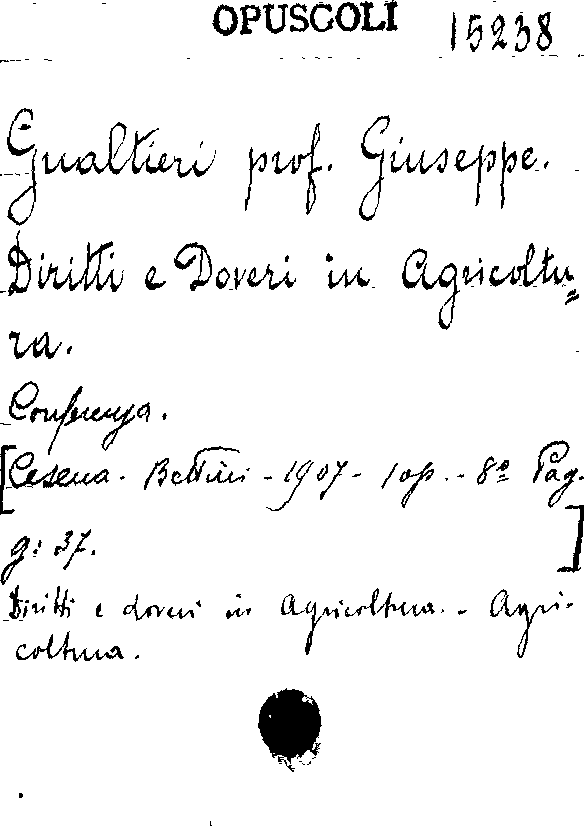 OPUSCOLI 15238
Gualtieri prof. Giuseppe.
Diritti e Doveri in Agricoltu=
ra.
Conferenza.
[Cesena. Bettini - 1907 - 1 op. - 8º Pag.
g: 37.]
Diritti e doveri in Agricoltura. - Agri-
coltura.